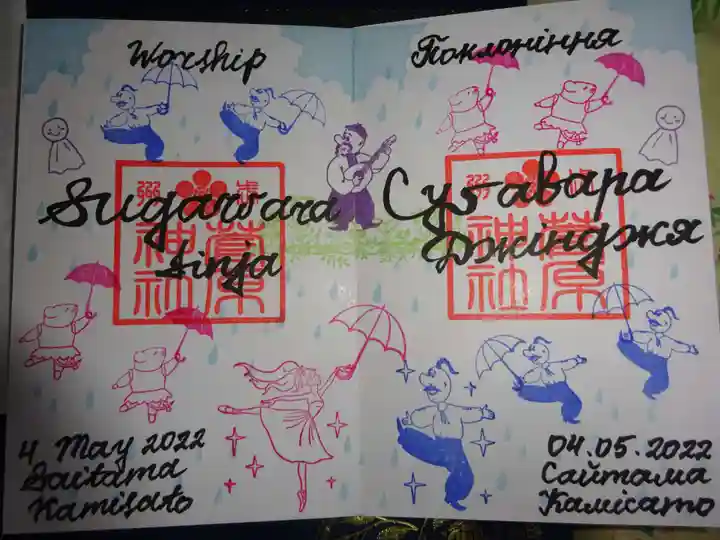 Worship
Sugawara
Jinja
菅原
神社
4 May 2022
Saitama
Kamisato
Поклоніння
Сугавара
Джінджя
菅原
神社
04.05.2022
Сайтама
Камісато